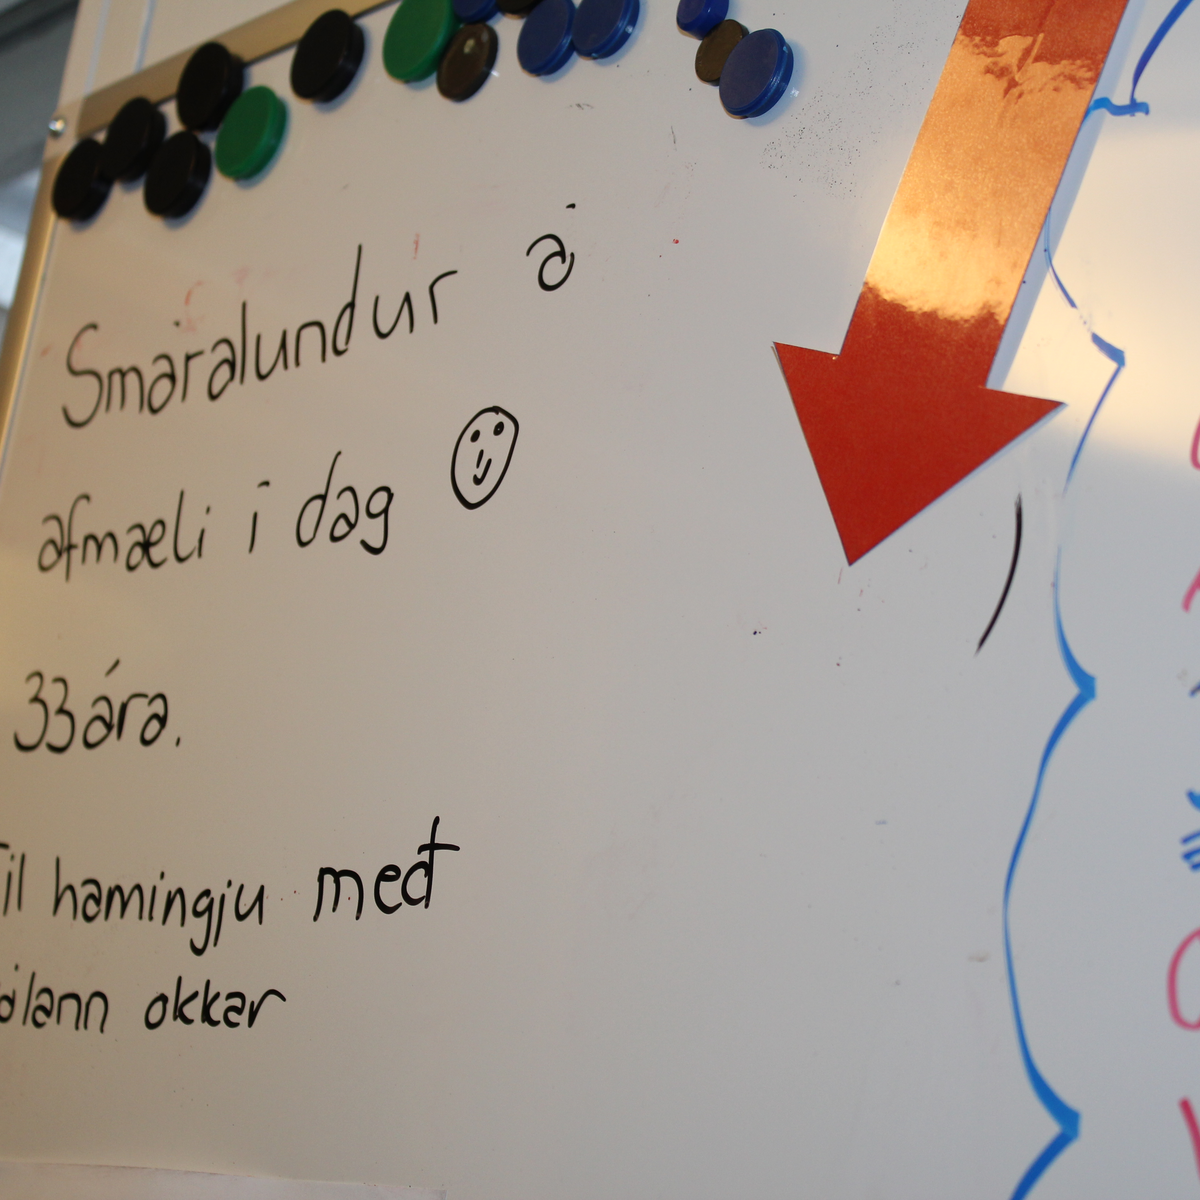 Smáralundur á
afmæli í dag
33 ára.
Til hamingju með
okkar